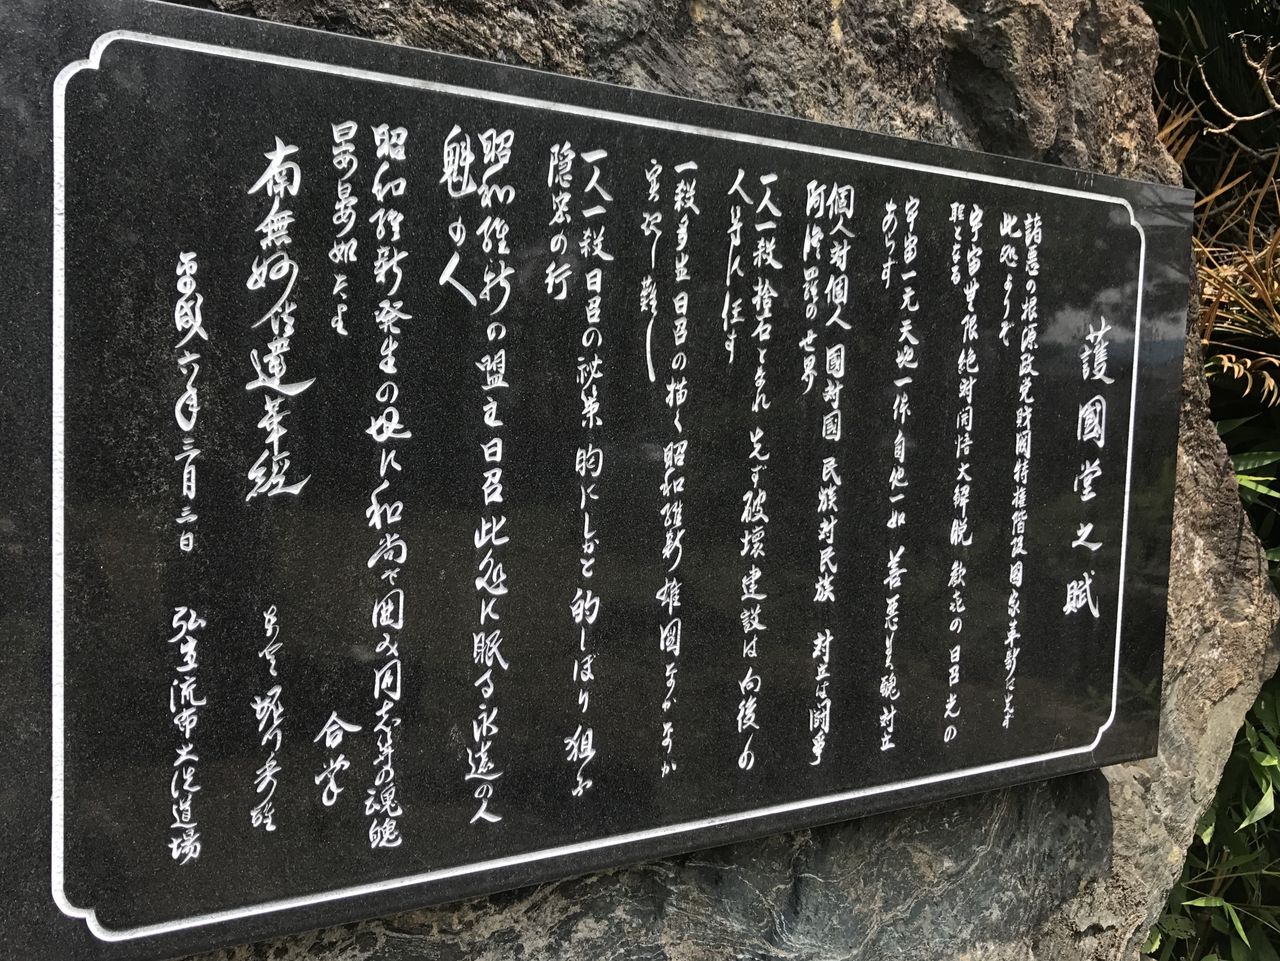 護國堂之賦
諸悪の根源政党財閥特権階級国家革新は先ず
此処よりぞ
宇宙無限絶対開悟大解脱 歓喜の日召光の
聖となる
宇宙一元天地一体自他一如 善悪美醜対立
あらず
個人対個人 國対國 民族対民族 対立は闘争
阿修羅の世界
一人一殺捨石となれ 先ず破壊建設は向後の
人等に任す
一殺多生日召の描く昭和維新雄図なかなか
実現し難し
一人一殺日召の秘策 胸にしかと的しぼり狙ふ
隠密の行
昭和維新の盟主日召此処に眠る永遠の人
魁の人
昭和維新発生の地に和尚で囲み同志等の魂魄
晏如たり
合掌
南無妙法蓮華経
堀川秀雄
平成六年三月三日 弘生流布大洗道場